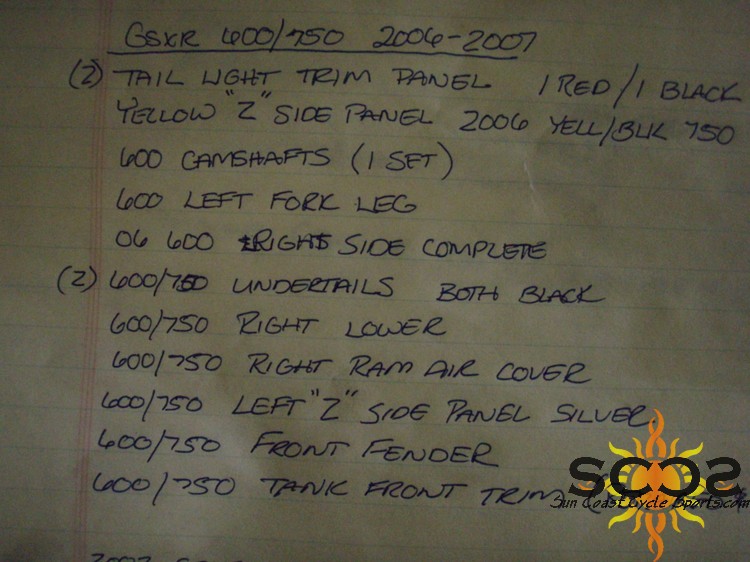 GSXR 600/750 2006-2007
(2) TAIL LIGHT TRIM PANEL 1 RED/1 BLACK
YELLOW "Z" SIDE PANEL 2006 YELL/BLK 750
600 CAMSHAFTS (1 SET)
600 LEFT FORK LEG
06 600 RIGHT SIDE COMPLETE
(2) 600/750 UNDERTAILS BOTH BLACK
600/750 RIGHT LOWER
600/750 RIGHT RAM AIR COVER
600/750 LEFT "Z" SIDE PANEL SILVER
600/750 FRONT FENDER
600/750 TANK FRONT TRIM
SCCS
Sun Coast Cycle Sports.com